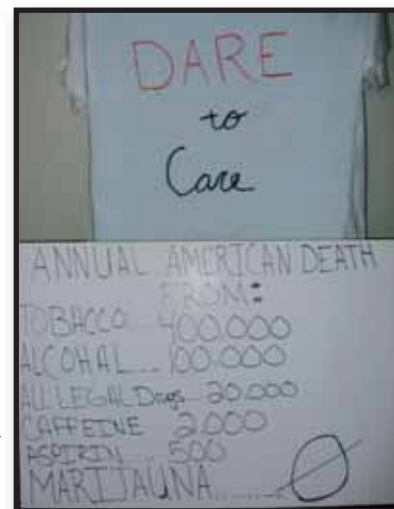 DARE
to
Care
ANNUAL AMERICAN DEATH
FROM:
TOBACCO...400.000
ALCOHAL...100.000
ALL LEGAL Drugs 20.000
CAFFEINE 2.000
ASPIRIN...500
MARIJAUNA........0